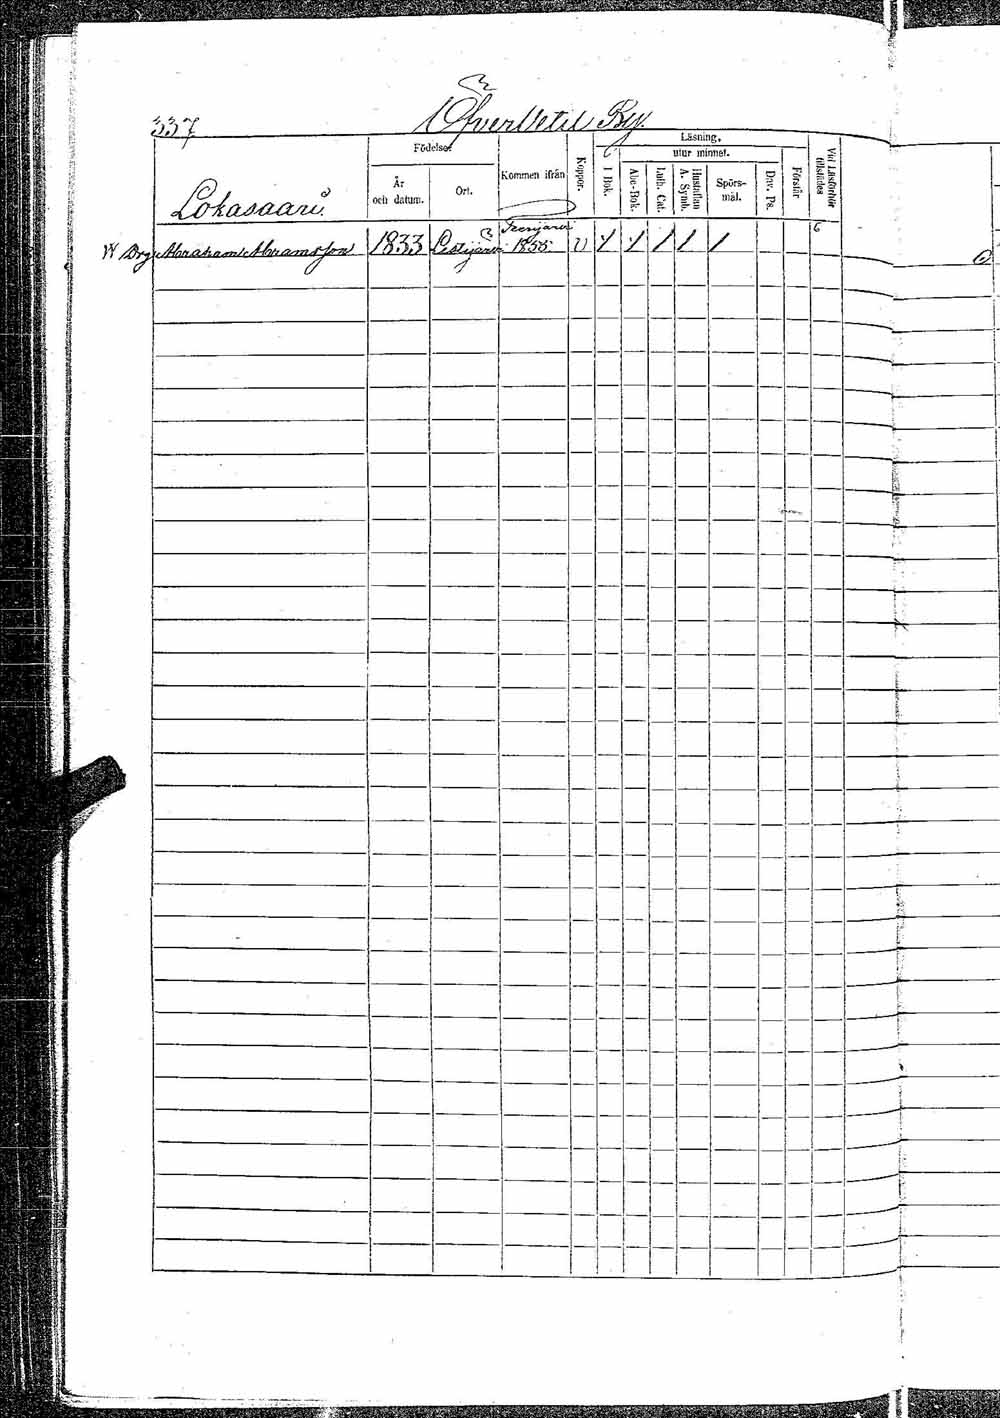 337
ÖfverVetil By.
Lokasaari.
Födelse
År och datum.
Ort.
Kommen ifrån
Koppor.
Läsning,
I Bok.
utur minnet.
Abc-Bok.
Luth. Cat.
Hustaflan A. Symb.
Spörs-mål.
Dav. Ps.
Förstår
Vid Läsförhör tillstädes
Drg Abraham Abramsson 1833 Lestijärvi 1855 V